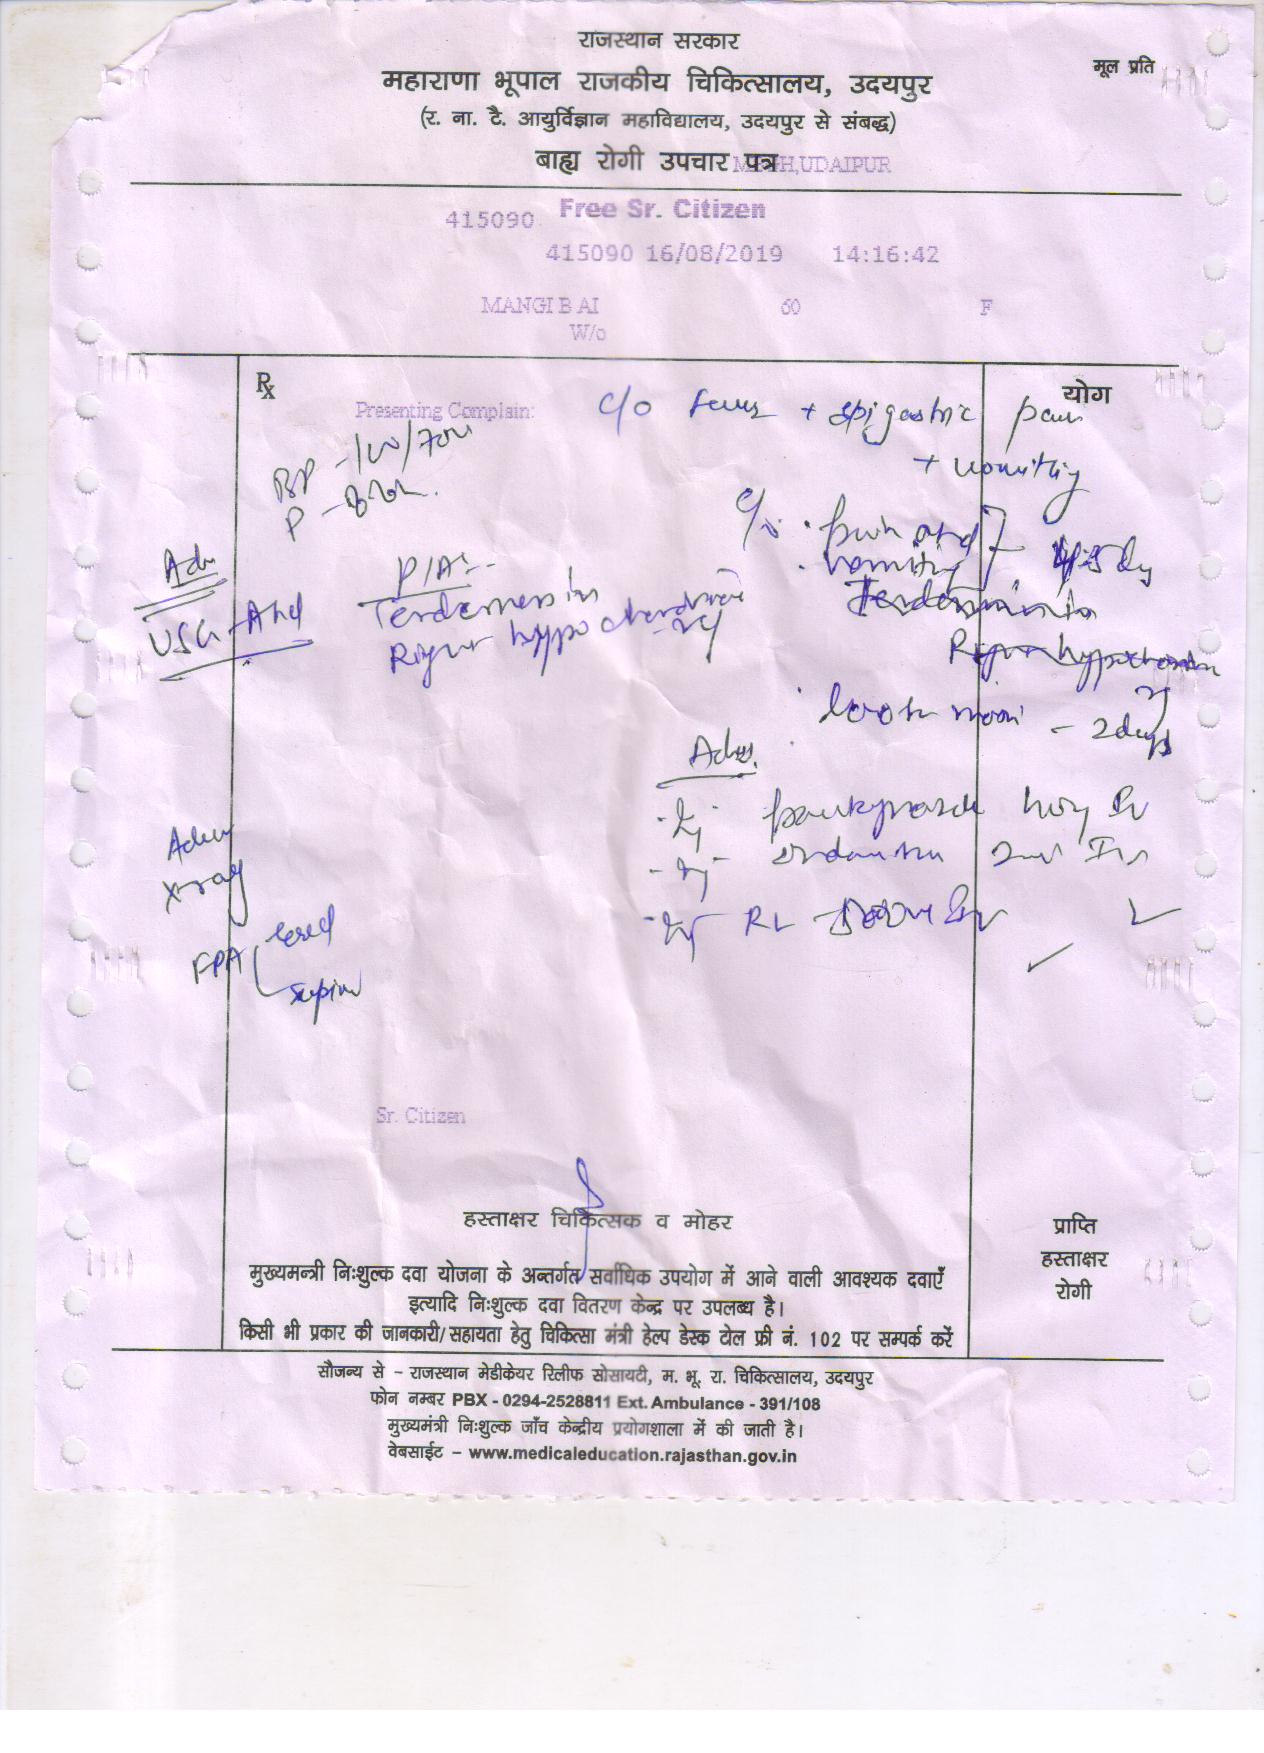 राजस्थान सरकार
मूल प्रति
महाराणा भूपाल राजकीय चिकित्सालय, उदयपुर
(र. ना. टै. आयुर्विज्ञान महाविद्यालय, उदयपुर से संबद्ध)
बाह्य रोगी उपचार पत्र
UDAIPUR
415090 Free Sr. Citizen
415090 16/08/2019 14:16:42
MANGI BAI 60 F
W/o
Rx
योग
Presenting Complain:
c/o fever + epigastric pain
+ vomiting
BP
P
c/o
vomiting
Adv
USG - Abd
P/A:-
Tenderness in
Right hypochondric
Tenderness in
Right hypochondr
- 2 days
Adv.
Inj
Inj
Inj RL
Adv
X-ray
FPA
supine
Sr. Citizen
हस्ताक्षर चिकित्सक व मोहर
प्राप्ति
हस्ताक्षर
रोगी
मुख्यमन्त्री निःशुल्क दवा योजना के अन्तर्गत सर्वाधिक उपयोग में आने वाली आवश्यक दवाएँ
इत्यादि निःशुल्क दवा वितरण केन्द्र पर उपलब्ध है।
किसी भी प्रकार की जानकारी/सहायता हेतु चिकित्सा मंत्री हेल्प डेस्क टोल फ्री नं. 102 पर सम्पर्क करें
सौजन्य से - राजस्थान मेडीकेयर रिलीफ सोसायटी, म. भू. रा. चिकित्सालय, उदयपुर
फोन नम्बर PBX - 0294-2528811 Ext. Ambulance - 391/108
मुख्यमंत्री निःशुल्क जाँच केन्द्रीय प्रयोगशाला में की जाती है।
वेबसाईट - www.medicaleducation.rajasthan.gov.in